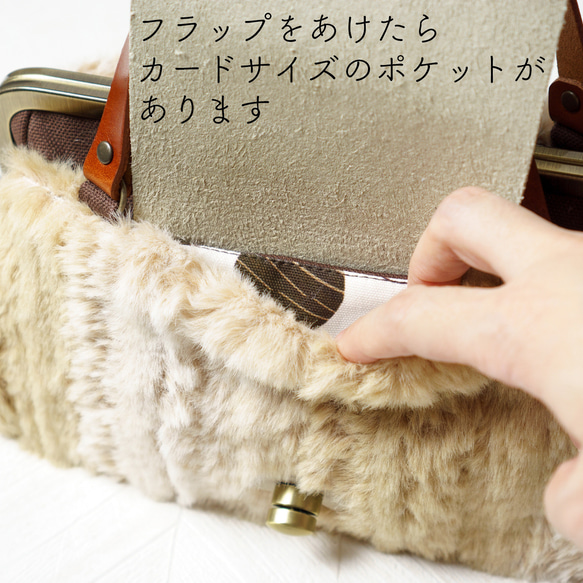 フラップをあけたら
カードサイズのポケットが
あります